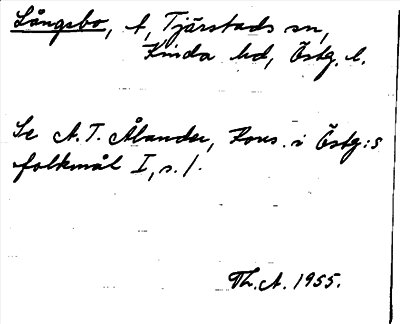 Långsbo, t, Tjärstads sn,
Kinda hd, Östg. l.
Se A. T. Ålander, Kons. i Östg:s
folkmål I, s. 1.
Th. A. 1955.